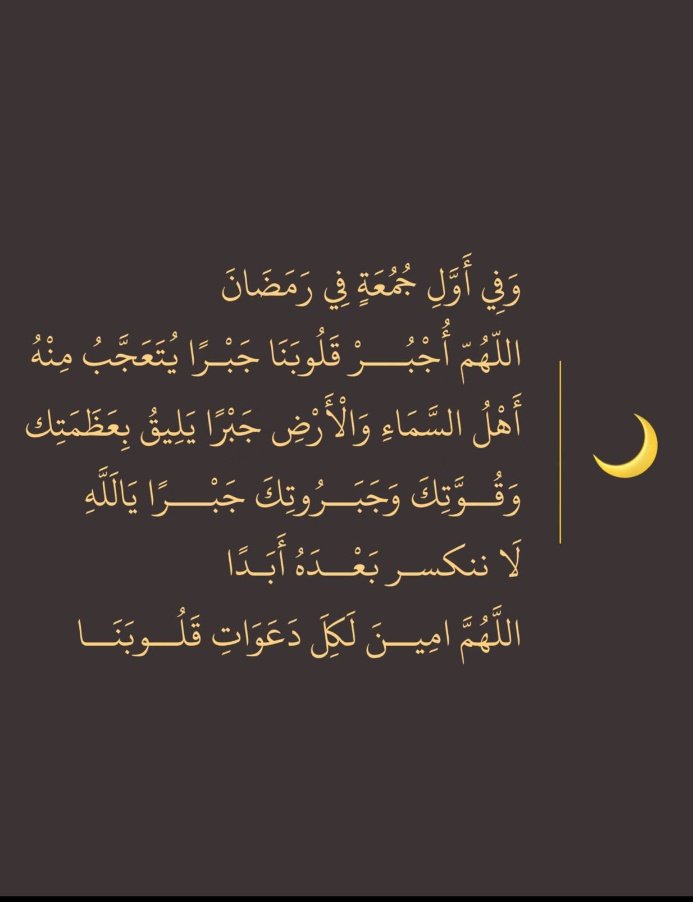 وَفِي أَوَّلِ جُمُعَةٍ فِي رَمَضَانَ
اللّهُمّ أُجْبُـــــرْ قَلُوبَنَا جَبْـرًا يُتَعَجَّبُ مِنْهُ
أَهْلُ السَّمَاءِ وَالْأَرْضِ جَبْرًا يَلِيقُ بِعَظَمَتِك
وَقُـــوَّتِكَ وَجَبَـــرُوتِكَ جَبْـــــرًا يَالَلَّهِ
لَا ننكســر بَعْـــدَهُ أَبَـدًا
اللَّهُمَّ امِيـــنَ لَكِلَ دَعَوَاتِ قَلُـــوبَنَـــا